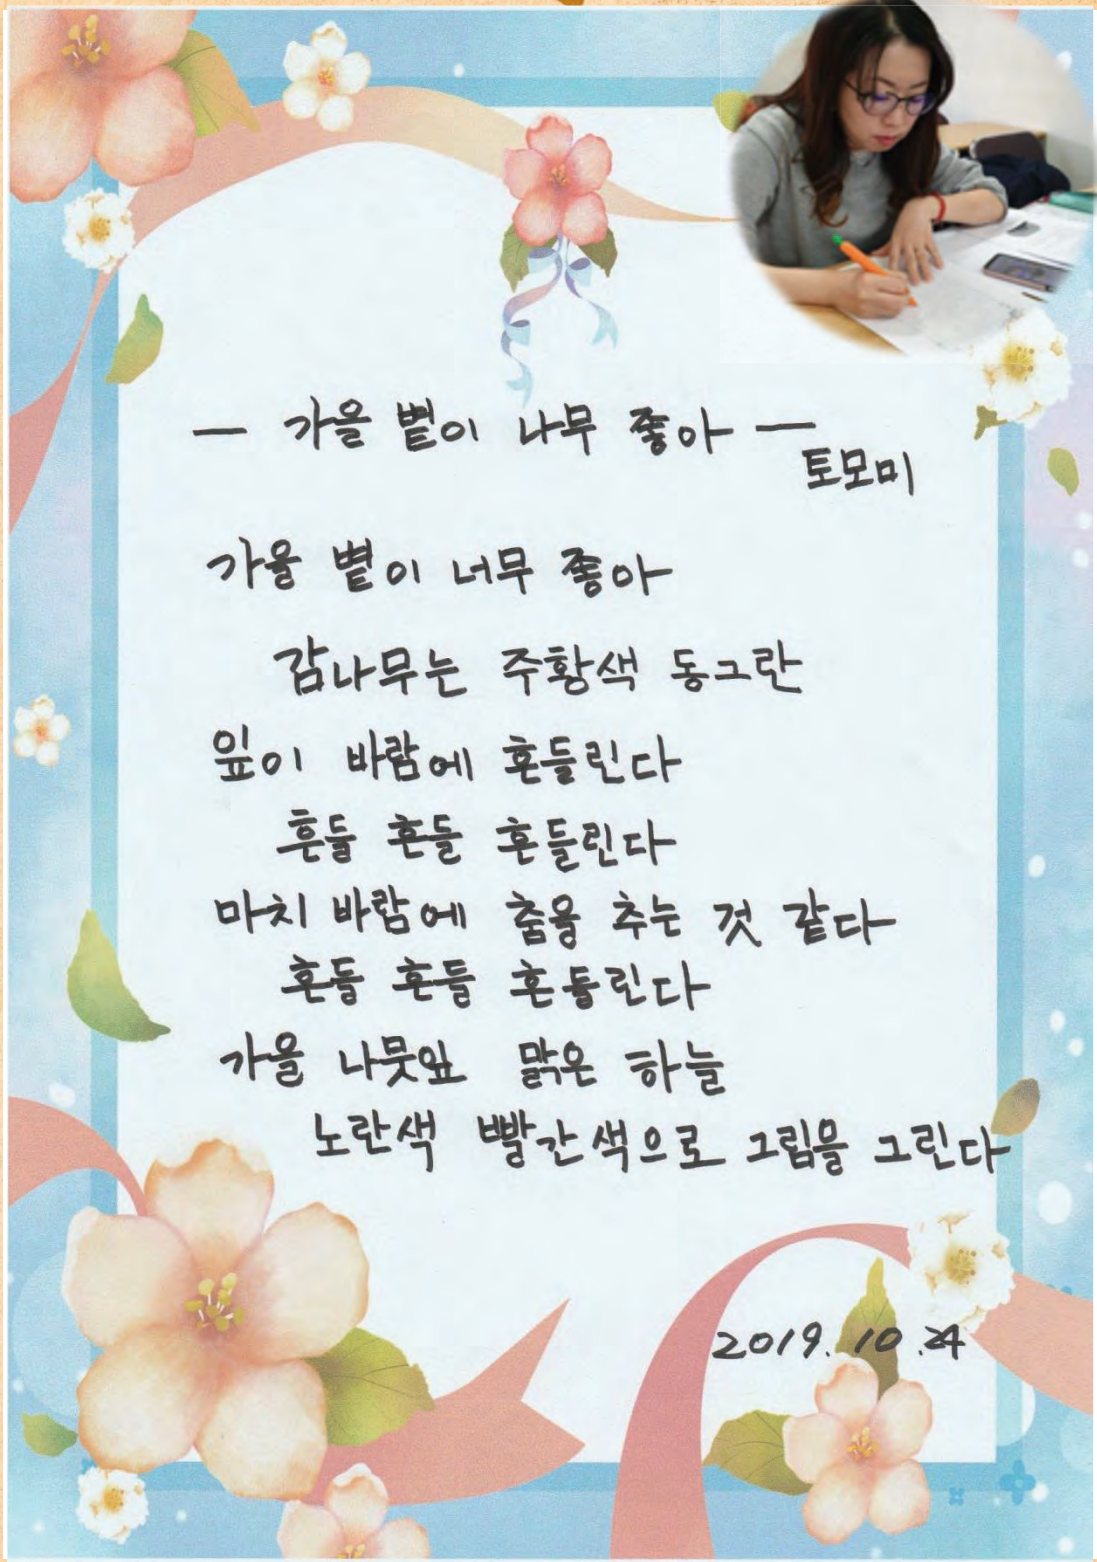 — 가을 볕이 나무 좋아 —
토모미
가을 볕이 너무 좋아
감나무는 주황색 동그란
잎이 바람에 흔들린다
흔들 흔들 흔들린다
마치 바람에 춤을 추는 것 같다
흔들 흔들 흔들린다
가을 나뭇잎 맑은 하늘
노란색 빨간색으로 그림을 그린다
2019. 10. 24